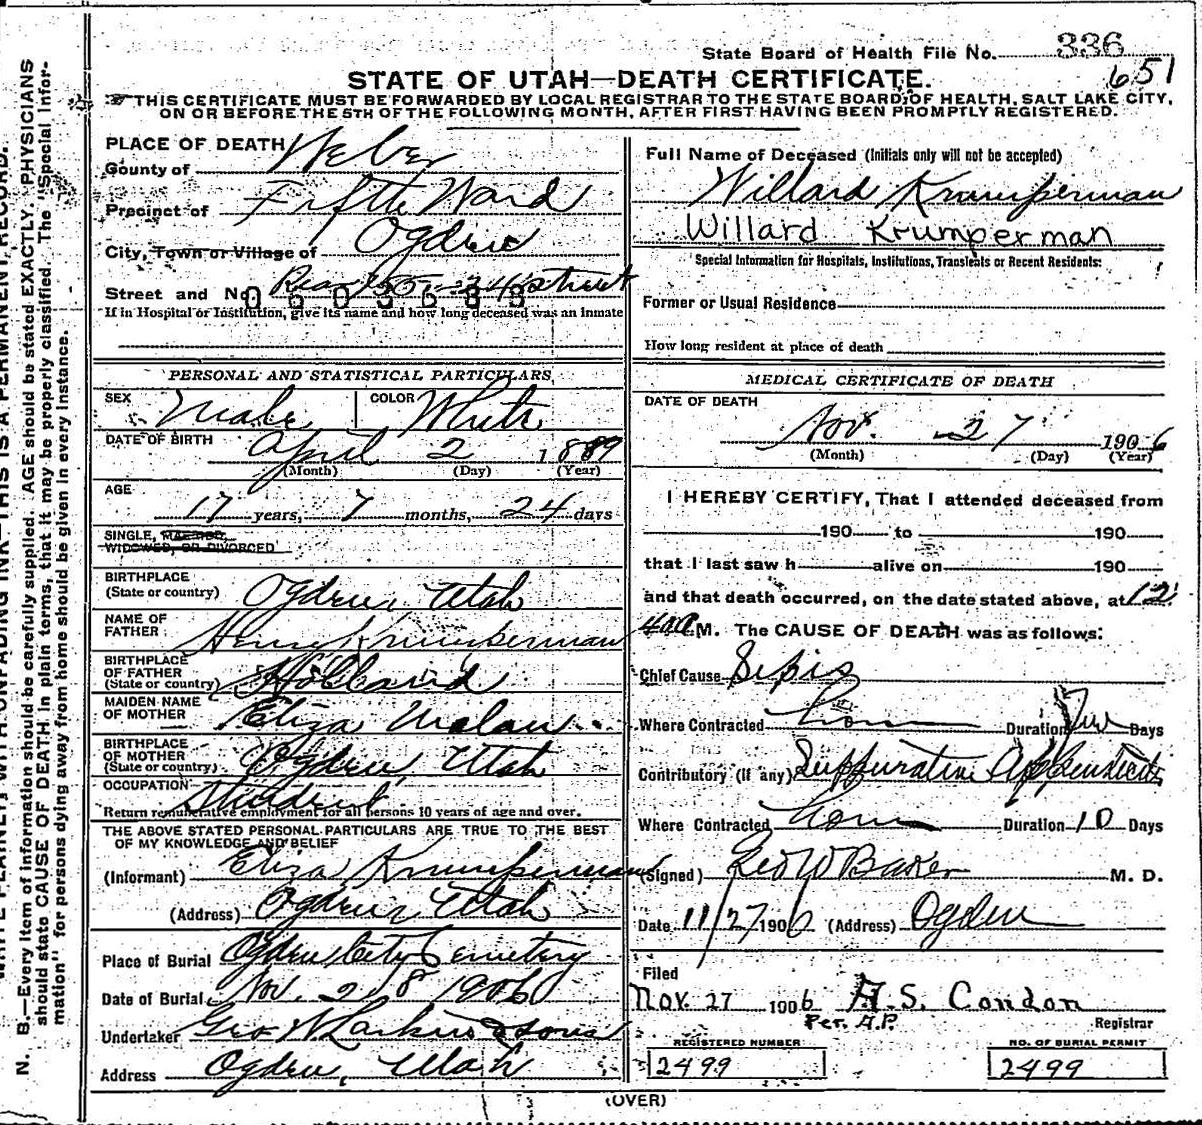 State Board of Health File No. 336
651
STATE OF UTAH—DEATH CERTIFICATE.
THIS CERTIFICATE MUST BE FORWARDED BY LOCAL REGISTRAR TO THE STATE BOARD OF HEALTH, SALT LAKE CITY,
ON OR BEFORE THE 5TH OF THE FOLLOWING MONTH, AFTER FIRST HAVING BEEN PROMPTLY REGISTERED.
PLACE OF DEATH
County of Weber
Precinct of Fifth Ward
City, Town or Village of Ogden
Street and No. Rear 24 street
If in Hospital or Institution, give its name and how long deceased was an inmate
PERSONAL AND STATISTICAL PARTICULARS
SEX Male COLOR White
DATE OF BIRTH April 2 1889
(Month) (Day) (Year)
AGE
17 years, 7 months, 24 days
SINGLE, MARRIED,
WIDOWED, OR DIVORCED
BIRTHPLACE
(State or country) Ogden, Utah
NAME OF
FATHER Henry Krumperman
BIRTHPLACE
OF FATHER
(State or country) Holland
MAIDEN NAME
OF MOTHER Eliza Malan
BIRTHPLACE
OF MOTHER
(State or country) Ogden, Utah
OCCUPATION Student
Return remunerative employment for all persons 10 years of age and over.
THE ABOVE STATED PERSONAL PARTICULARS ARE TRUE TO THE BEST
OF MY KNOWLEDGE AND BELIEF
(Informant) Eliza Krumperman
(Address) Ogden Utah
Place of Burial Ogden City Cemetery
Date of Burial Nov. 28 1906
Undertaker Geo W Larkin & Sons
Address Ogden, Utah
Full Name of Deceased (Initials only will not be accepted)
Willard Krumperman
Willard Krumperman
Special Information for Hospitals, Institutions, Transients or Recent Residents:
Former or Usual Residence
How long resident at place of death
MEDICAL CERTIFICATE OF DEATH
DATE OF DEATH
Nov. 27 1906
(Month) (Day) (Year)
I HEREBY CERTIFY, That I attended deceased from
190 to 190
that I last saw h alive on 190
and that death occurred, on the date stated above, at 12
40 A M. The CAUSE OF DEATH was as follows:
Chief Cause Sepsis
Where Contracted home Duration Few Days
Contributory (if any) Suppurative Appendicitis
Where Contracted home Duration 10 Days
(Signed) Geo W Baker M. D.
Date 11/27 1906 (Address) Ogden
Filed
Nov. 27 1906 A.S. Condon
Per. A.P. Registrar
REGISTERED NUMBER
2499
NO. OF BURIAL PERMIT
2499
(OVER)
N. B.—Every item of information should be carefully supplied. AGE should be stated EXACTLY. PHYSICIANS
should state CAUSE OF DEATH in plain terms, that it may be properly classified. The "Special Infor-
mation" for persons dying away from home should be given in every instance.
WRITE PLAINLY, WITH UNFADING INK—THIS IS A PERMANENT RECORD.